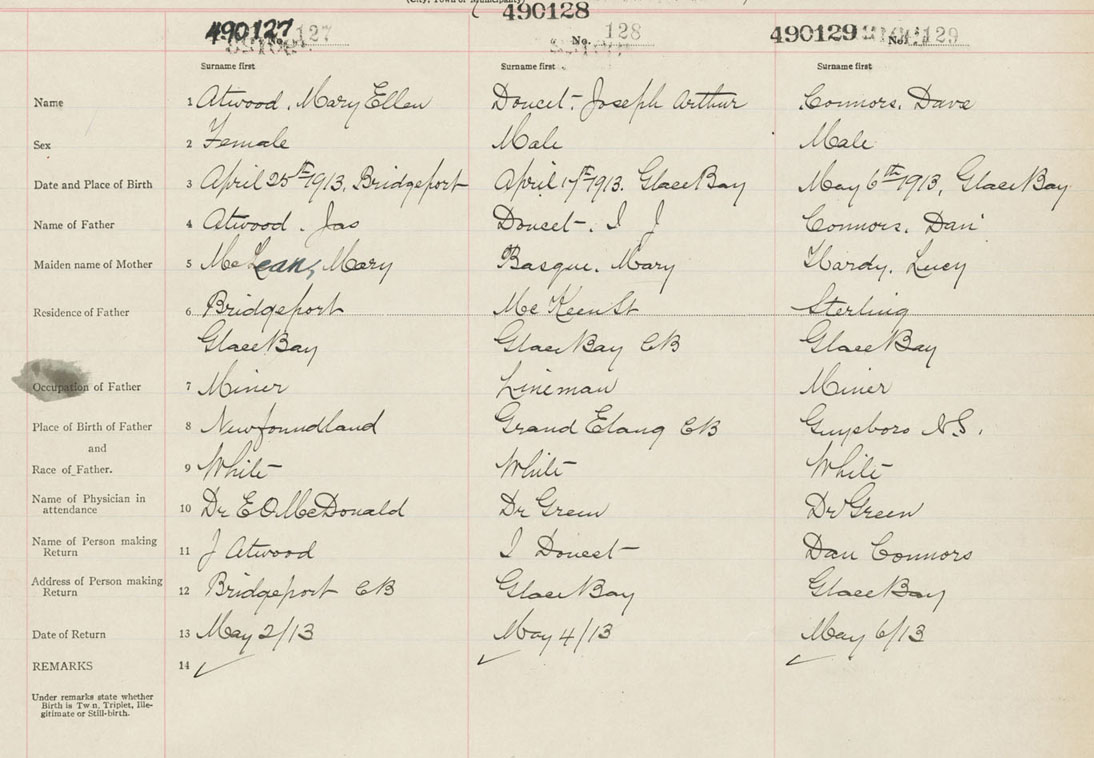 (City, Town or Municipality)
490127 No. 127
490128 No. 128
490129 No. 129
Surname first Surname first Surname first
Name 1 Atwood, Mary Ellen Doucet, Joseph Arthur Connors, Dave
Sex 2 Female Male Male
Date and Place of Birth 3 April 25th 1913, Bridgeport April 1913. Glace Bay May 6th 1913, Glace Bay
Name of Father 4 Atwood, Jas Doucet, J J Connors, Dan
Maiden name of Mother 5 McLean, Mary Basque, Mary Hardy, Lucy
Residence of Father 6 Bridgeport McKeen St Sterling
Glace Bay Glace Bay CB Glace Bay
Occupation of Father 7 Miner Lineman Miner
Place of Birth of Father 8 Newfoundland Grand Etang CB Guysboro N.S.
and
Race of Father. 9 White White White
Name of Physician in 10 Dr E O McDonald Dr Green Dr Green
attendance
Name of Person making 11 J Atwood J Doucet Dan Connors
Return
Address of Person making 12 Bridgeport CB Glace Bay Glace Bay
Return
Date of Return 13 May 2/13 May 4/13 May 6/13
REMARKS 14
Under remarks state whether
Birth is Twin, Triplet, Ille-
gitimate or Still-birth.